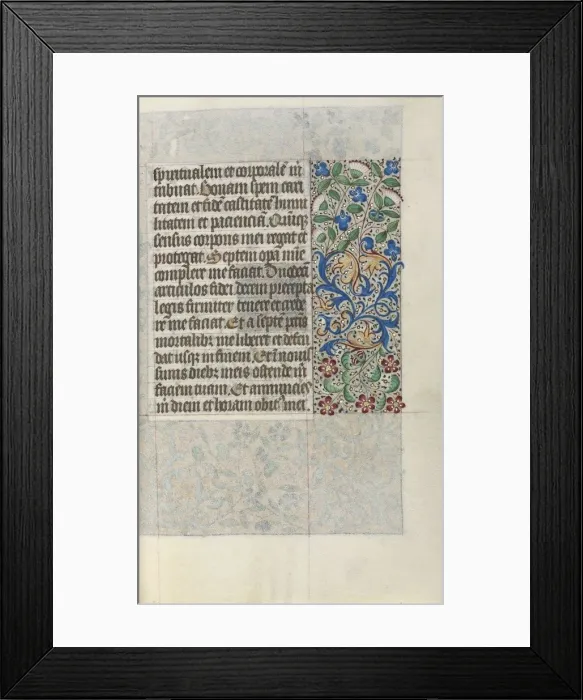 spiritualem et corporalē m̄
tribuat. Bonam spem cari
tatem et fidē castitatē humi
litatem et pacienciā. Quīqꝫ
sensus corporis mei regat et
protegat. Septem opā mīe
complere me faciat. Duodecī
articulos fidei decem precepta
legis firmiter tenere et crede
re me faciat. Et a septē pctīs
mortalibꝫ me liberet et defen
dat usqꝫ in finem. Et ī novis
simis diebꝫ meis ostende m̄
faciem tuam. Et annuncies
m̄ diem et horam obitꝰ mei.